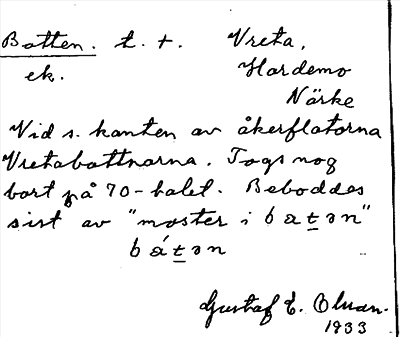 Botten. t. t. Vreta,
ek. Hardemo
Närke
Vid s. kanten av åkerflatorna
Vretabottnarna. Togs nog
bort på 70-talet. Beboddes
sist av "moster i b a t ə n"
b á t ə n
Gustaf E. Olsson.
1933